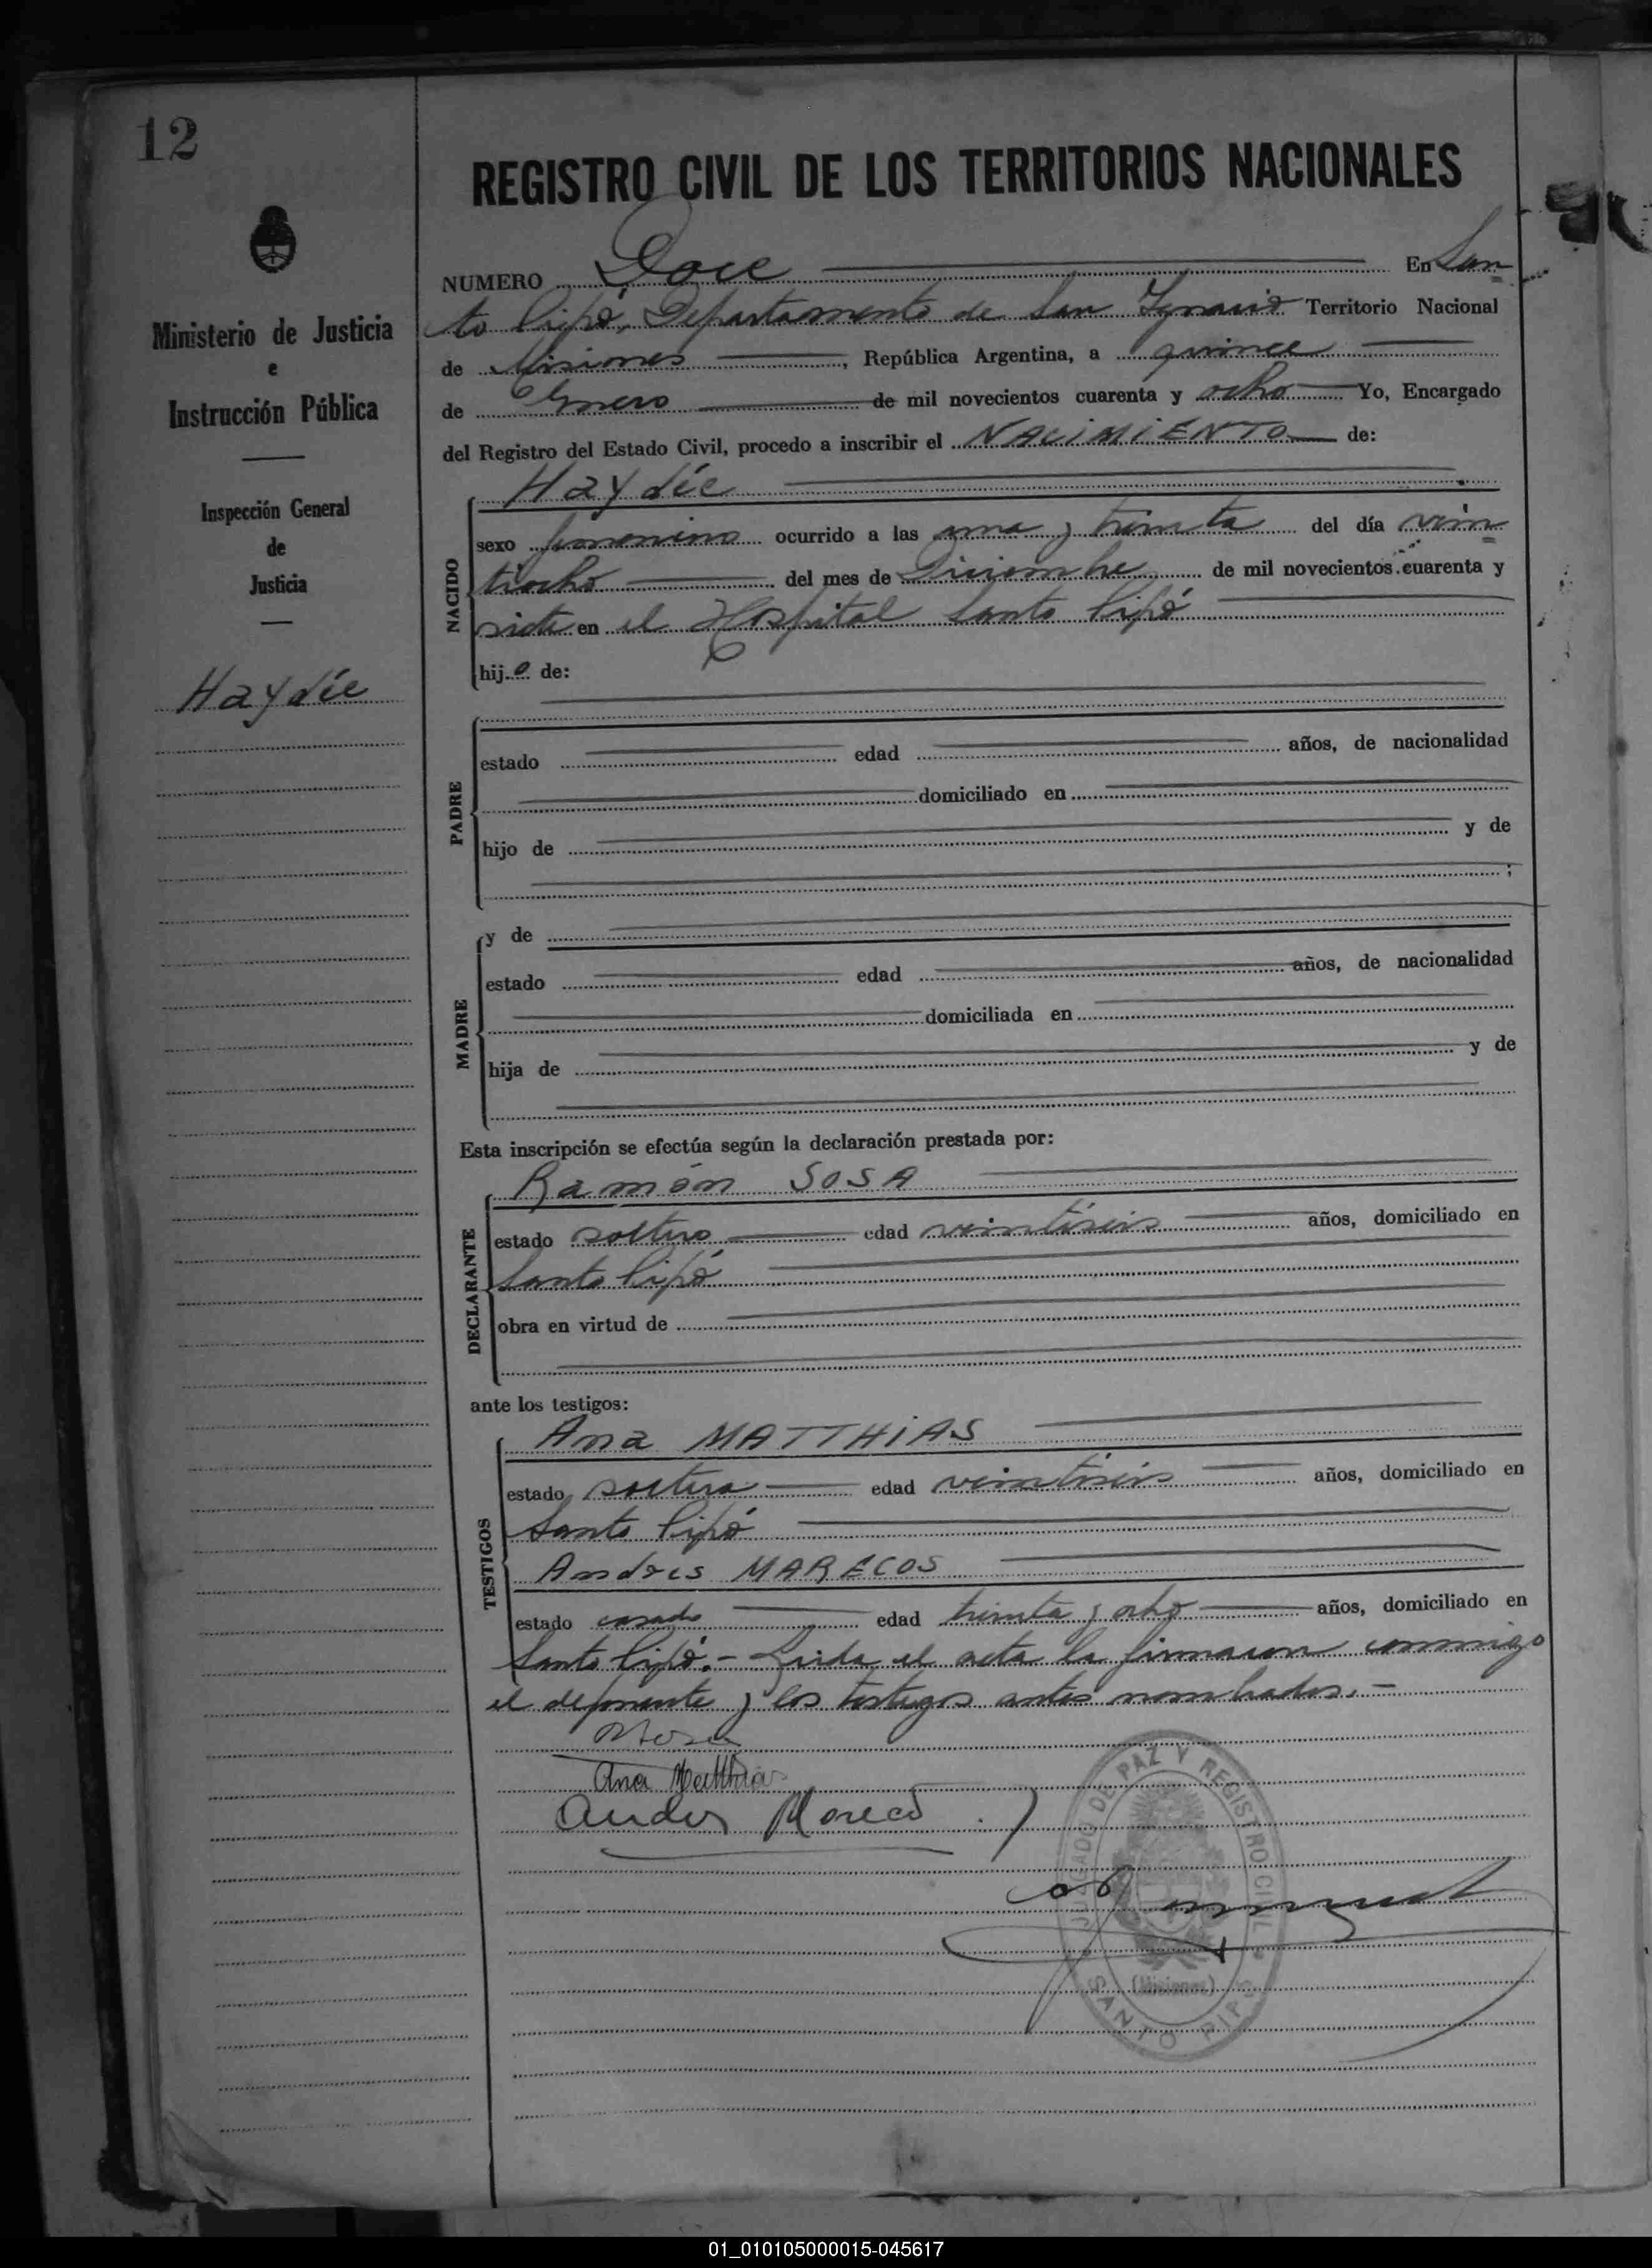 12
REGISTRO CIVIL DE LOS TERRITORIOS NACIONALES
Ministerio de Justicia
e
Instrucción Pública
Inspección General
de
Justicia
Haydée
NUMERO Doce En San
to Pipó, Departamento de San Ignacio Territorio Nacional
de Misiones, República Argentina, a quince
de Enero de mil novecientos cuarenta y ocho Yo, Encargado
del Registro del Estado Civil, procedo a inscribir el NACIMIENTO de:
NACIDO
Haydée
sexo femenino ocurrido a las una y treinta del día vein
tiocho del mes de Diciembre de mil novecientos cuarenta y
siete en el Hospital Santo Pipó
hij de:
PADRE
estado edad años, de nacionalidad
domiciliado en
hijo de y de
;
MADRE
y de
estado edad años, de nacionalidad
domiciliada en
hija de y de
Esta inscripción se efectúa según la declaración prestada por:
DECLARANTE
Ramón SOSA
estado soltero edad veintiseis años, domiciliado en
Santo Pipó
obra en virtud de
ante los testigos:
TESTIGOS
Ana MATTHIAS
estado soltera edad veintiseis años, domiciliado en
Santo Pipó
Andrés MARECOS
estado casado edad treinta y ocho años, domiciliado en
Santo Pipó.- Leida el acta la firmaron conmigo
el deponente y los testigos antes nombrados.-
Ana Matthias
JUZGADO DE PAZ Y REGISTRO CIVIL
(Misiones)
SANTO PIPÓ
01_010105000015-045617